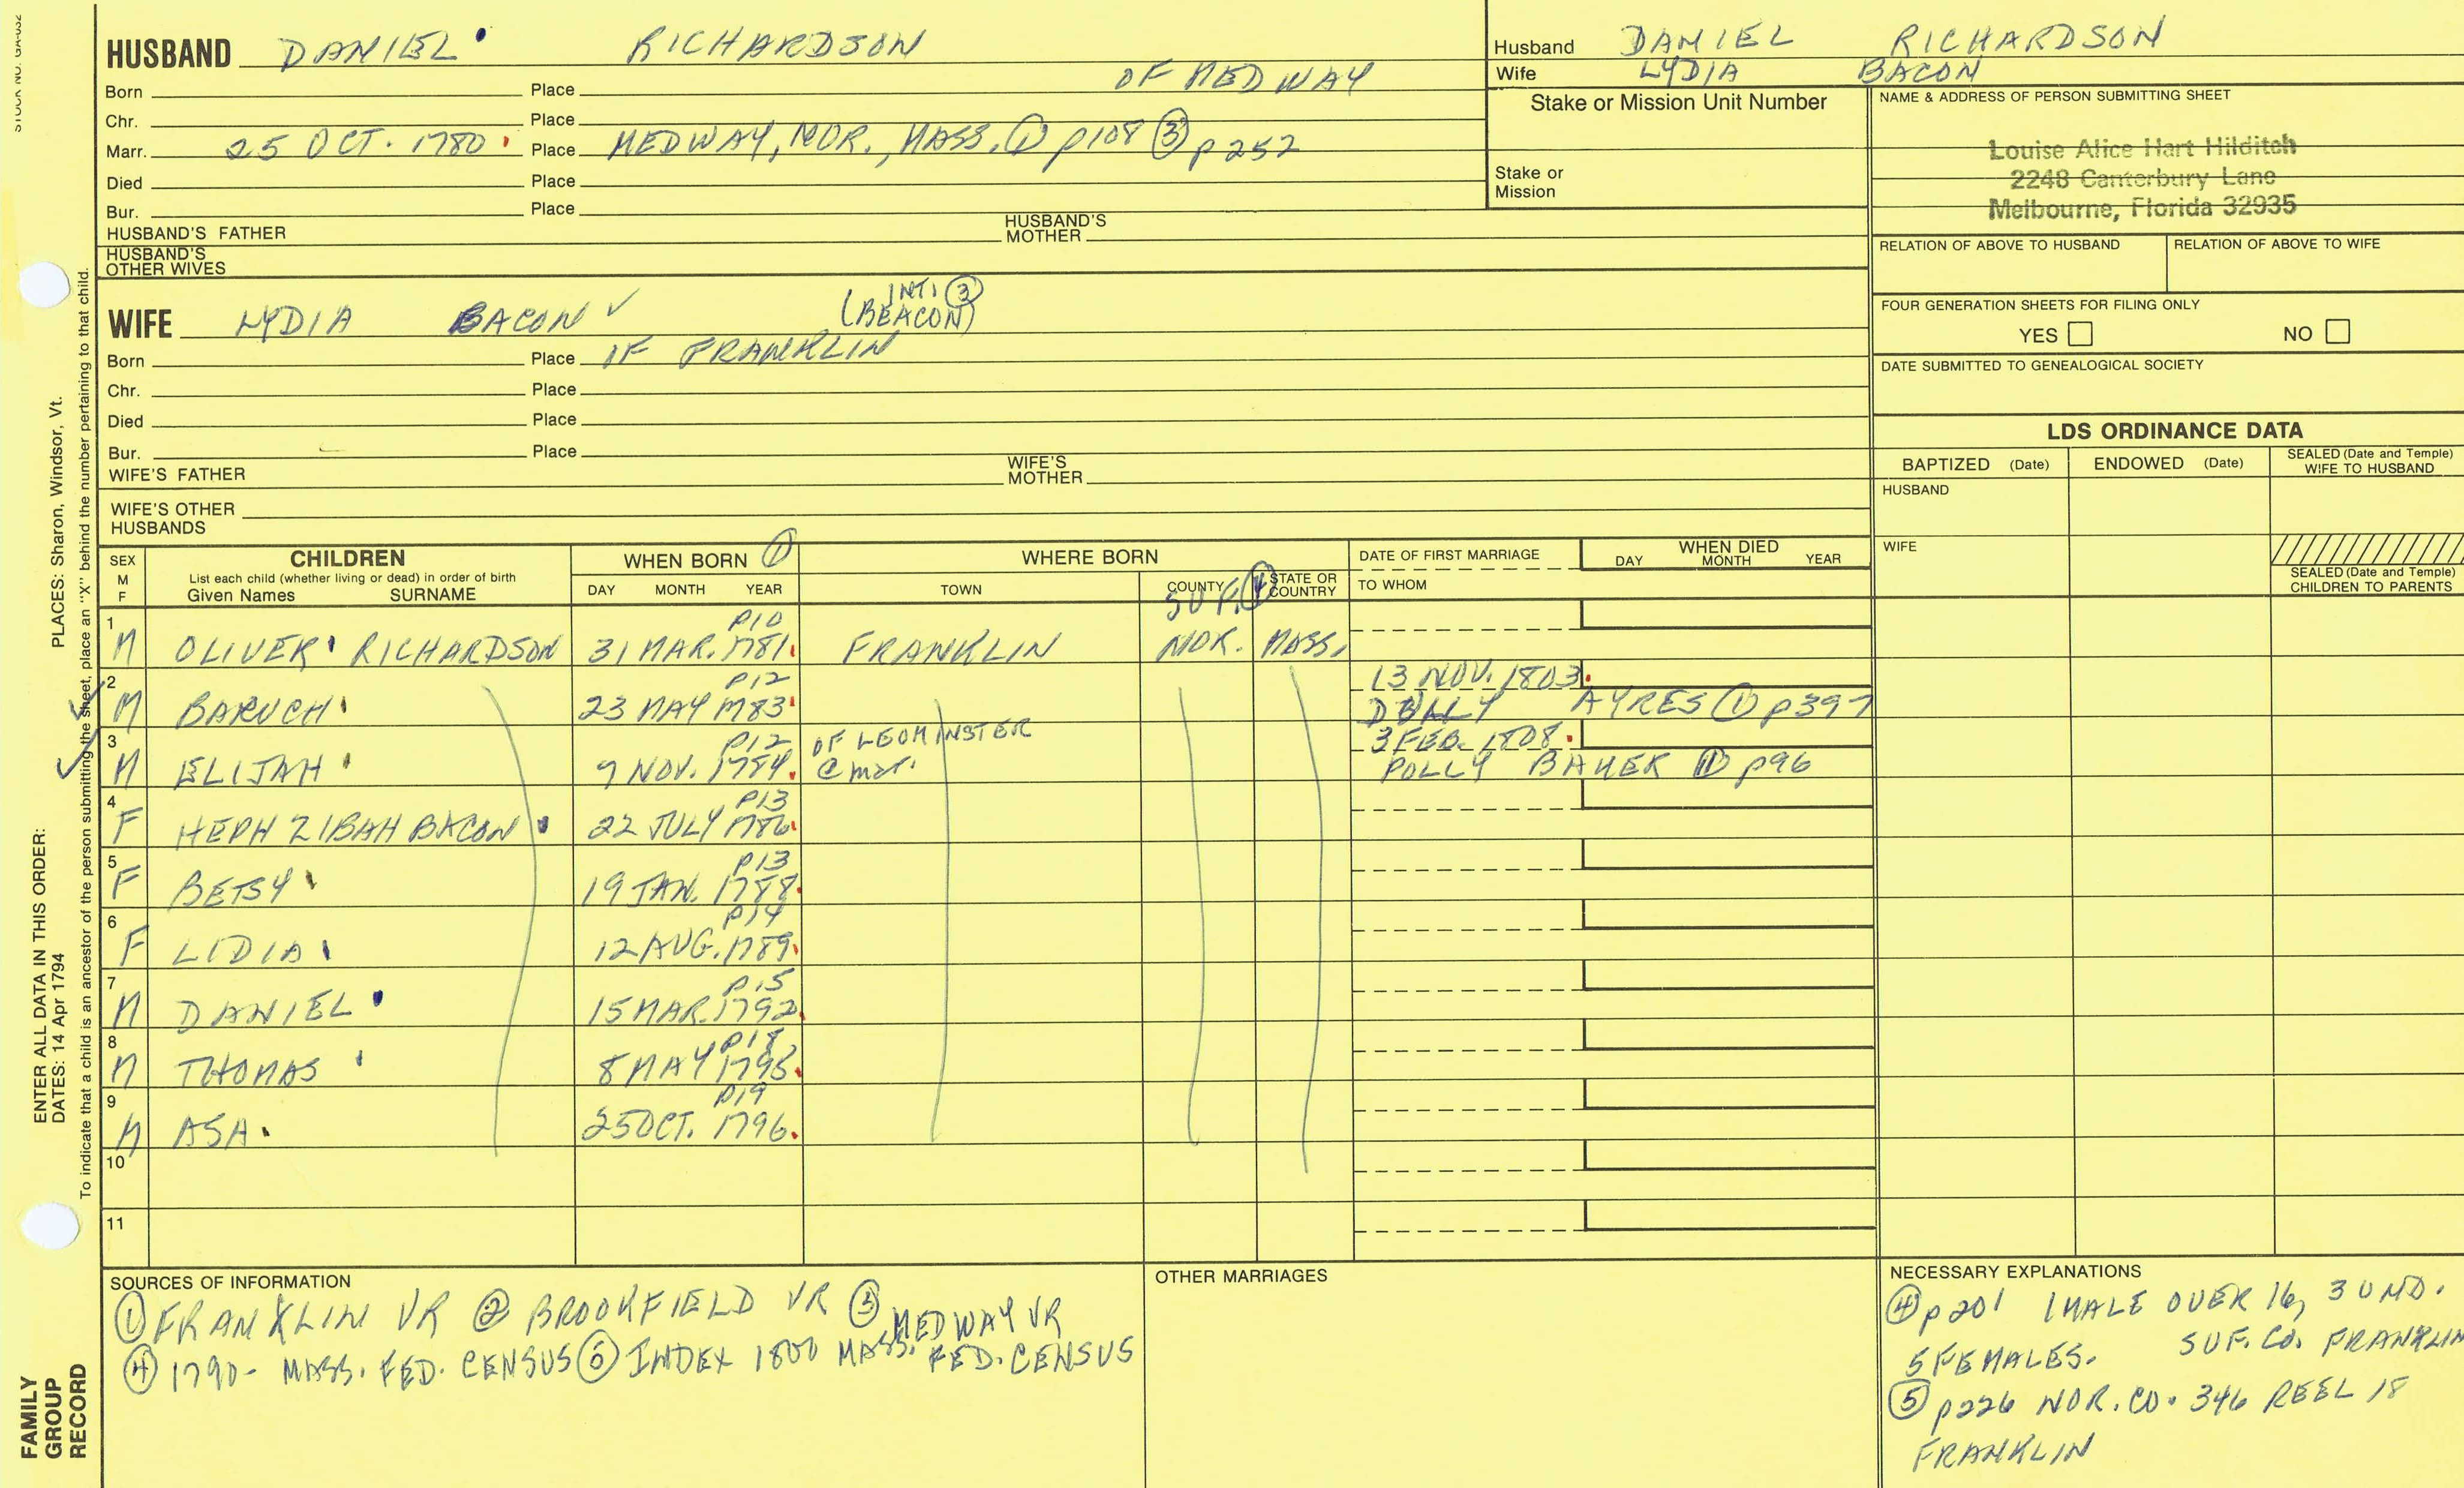 STOCK NO. GA-032
HUSBAND DANIEL RICHARDSON
Born Place OF MEDWAY
Chr. Place
Marr. 25 OCT. 1780 Place MEDWAY, NOR., MASS. ① p108 ③ p252
Died Place
Bur. Place
HUSBAND'S FATHER HUSBAND'S MOTHER
HUSBAND'S OTHER WIVES
Husband DANIEL RICHARDSON
Wife LYDIA BACON
Stake or Mission Unit Number
Stake or Mission
NAME & ADDRESS OF PERSON SUBMITTING SHEET
Louise Alice Hart Hilditch
2248 Canterbury Lane
Melbourne, Florida 32935
RELATION OF ABOVE TO HUSBAND RELATION OF ABOVE TO WIFE
FOUR GENERATION SHEETS FOR FILING ONLY
YES NO
DATE SUBMITTED TO GENEALOGICAL SOCIETY
LDS ORDINANCE DATA
BAPTIZED (Date) ENDOWED (Date) SEALED (Date and Temple) WIFE TO HUSBAND
HUSBAND
WIFE
SEALED (Date and Temple) CHILDREN TO PARENTS
WIFE LYDIA BACON ✓ INT. ③ (BEACON)
Born Place OF FRANKLIN
Chr. Place
Died Place
Bur. Place
WIFE'S FATHER WIFE'S MOTHER
WIFE'S OTHER HUSBANDS
SEX M F
CHILDREN
List each child (whether living or dead) in order of birth
Given Names SURNAME
WHEN BORN ①
DAY MONTH YEAR
WHERE BORN
TOWN COUNTY STATE OR COUNTRY
SUF. ④
DATE OF FIRST MARRIAGE
TO WHOM
WHEN DIED
DAY MONTH YEAR
1 M OLIVER RICHARDSON 31 MAR. 1781 P10 FRANKLIN NOR. MASS.
2 M BARUCH 23 MAY 1783 P12 13 NOV. 1803 AYRES ① p397
3 M ELIJAH 9 NOV. 1784 P12 OF LEOMINSTER @ mar. 3 FEB. 1808 POLLY BAKER ① p96
4 F HEPHZIBAH BACON 22 JULY 1786 P13
5 F BETSY 19 JAN. 1788 P13
6 F LIDIA 12 AUG. 1789 P14
7 M DANIEL 15 MAR. 1792 P15
8 M THOMAS 8 MAY 1795 P18
9 M ASA 25 OCT. 1796 P19
10
11
SOURCES OF INFORMATION
① FRANKLIN VR ② BROOKFIELD VR ③ MEDWAY VR
④ 1790- MASS. FED. CENSUS ⑤ INDEX 1800 MASS. FED. CENSUS
OTHER MARRIAGES
NECESSARY EXPLANATIONS
④ p201 1 MALE OVER 16, 3 UND.
5 FEMALES. SUF. CO. FRANKLIN
⑤ p226 NOR. CO. 346 REEL 18
FRANKLIN
ENTER ALL DATA IN THIS ORDER:
DATES: 14 Apr 1794
PLACES: Sharon, Windsor, Vt.
To indicate that a child is an ancestor of the person submitting the sheet, place an "X" behind the number pertaining to that child.
FAMILY
GROUP
RECORD